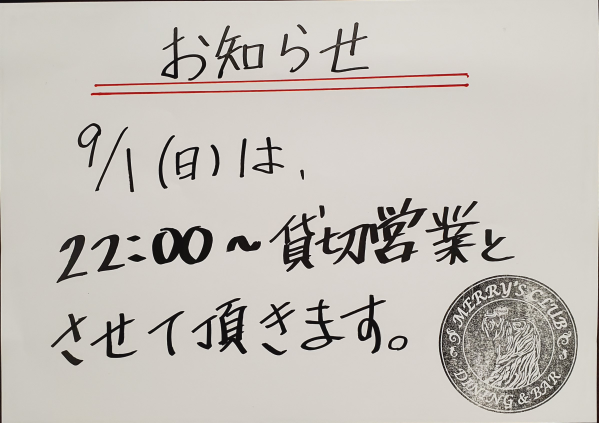 お知らせ
9/1(日)は、
22:00〜貸切営業と
させて頂きます。
MERRY'S CLUB
DINING & BAR